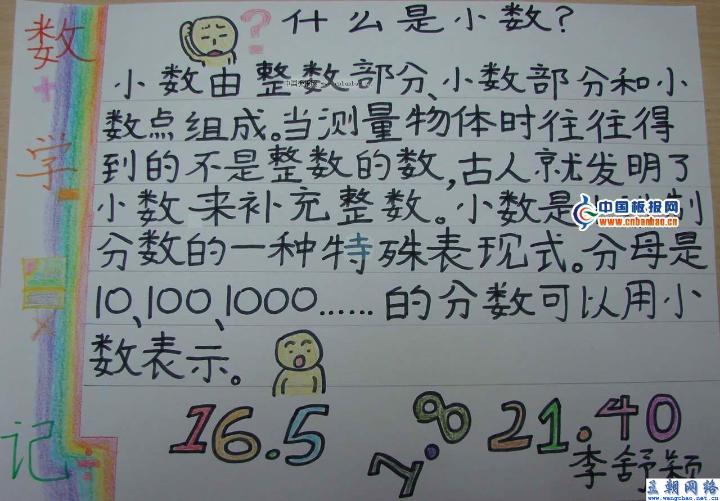 数
+
学
-
日
×
记
÷
?什么是小数?
小数由整数部分、小数部分和小
数点组成。当测量物体时往往得
到的不是整数的数,古人就发明了
小数来补充整数。小数是制
分数的一种特殊表现式。分母是
10、100、1000……的分数可以用小
数表示。
16.5
21.40
李舒颖
中国板报网
www.cnbanbao.cn
王朝网络
www.wangchao.net.cn